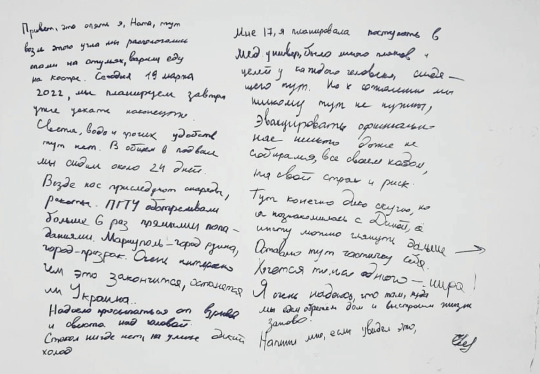 Привет, это опять я, Ната, тут
возле этого угла мы расположились
на стульях, варили еду
на костре. Сегодня 19 марта
2022, мы планируем завтра
уже уехать наконецто.
Света, воды и прочих удобств
тут нет. В общем в подвале
мы сидим около 24 дней
Везде нас преследуют снаряды,
ракеты. ПГТУ обстреливали
больше 6 раз прямыми попа-
даниями. Мариуполь - город руина,
город-призрак. Очень интересно
чем это закончится, останется
ли Украина..
Надоело просыпаться от взрыва
и свиста над головой
Стекол нигде нет, на улице дикий
холод
Мне 17, я планировала поступать в
Мед универ, было много планов и
целей у каждого человека, сидя-
щего тут. Но к сожалению мы
никому тут не нужны,
Эвакуировать официально
нас никто даже не
собирался, все своим ходом,
на свой страх и риск.
Тут конечно дико скучно, но
я познакомилась с Димой, а
инсту можно глянуть дальше →
Оставлю тут частичку себя.
Хочется только одного - мира!
Я очень надеюсь, что там, куда
мы едем обретем дом и выстроим жизнь
заново.
Напиши мне, если увидел это,